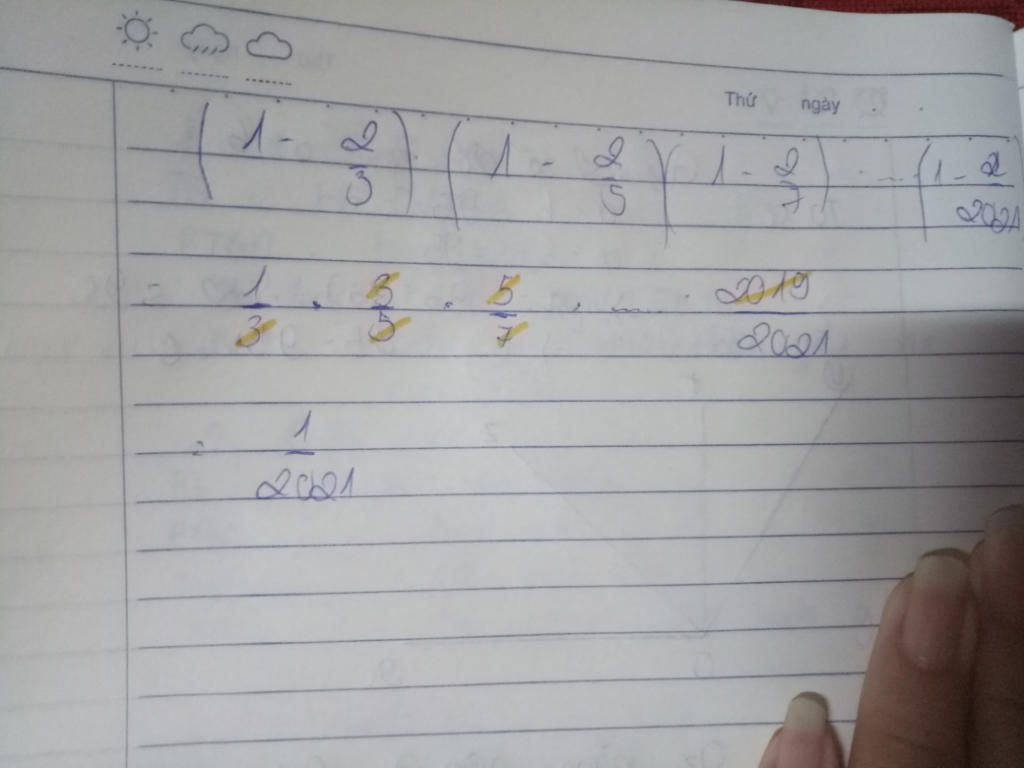 Thứ ngày
(1 - 2/3) . (1 - 2/5)(1 - 2/7) . ... (1 - 2/2021
= 1/3 . 3/5 . 5/7 . .... . 2019/2021
= 1/2021